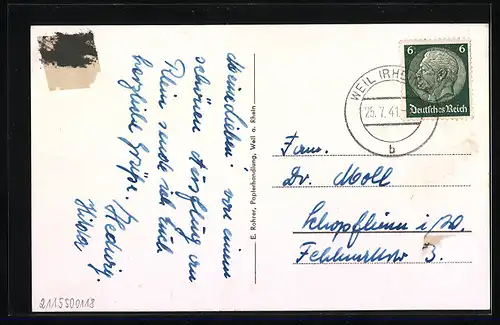 Meine Lieben! von einem
schönen Ausflug am
Rhein sende ich Euch
herzliche Grüße. Hedwig.
E. Rohrer, Papierhandlung, Weil a. Rhein
6 6
Deutsches Reich
WEIL (RHEIN)
25.7.41.
b
Fam.
Dr. Moll
Schopfheim i/W.
3.
2115500118